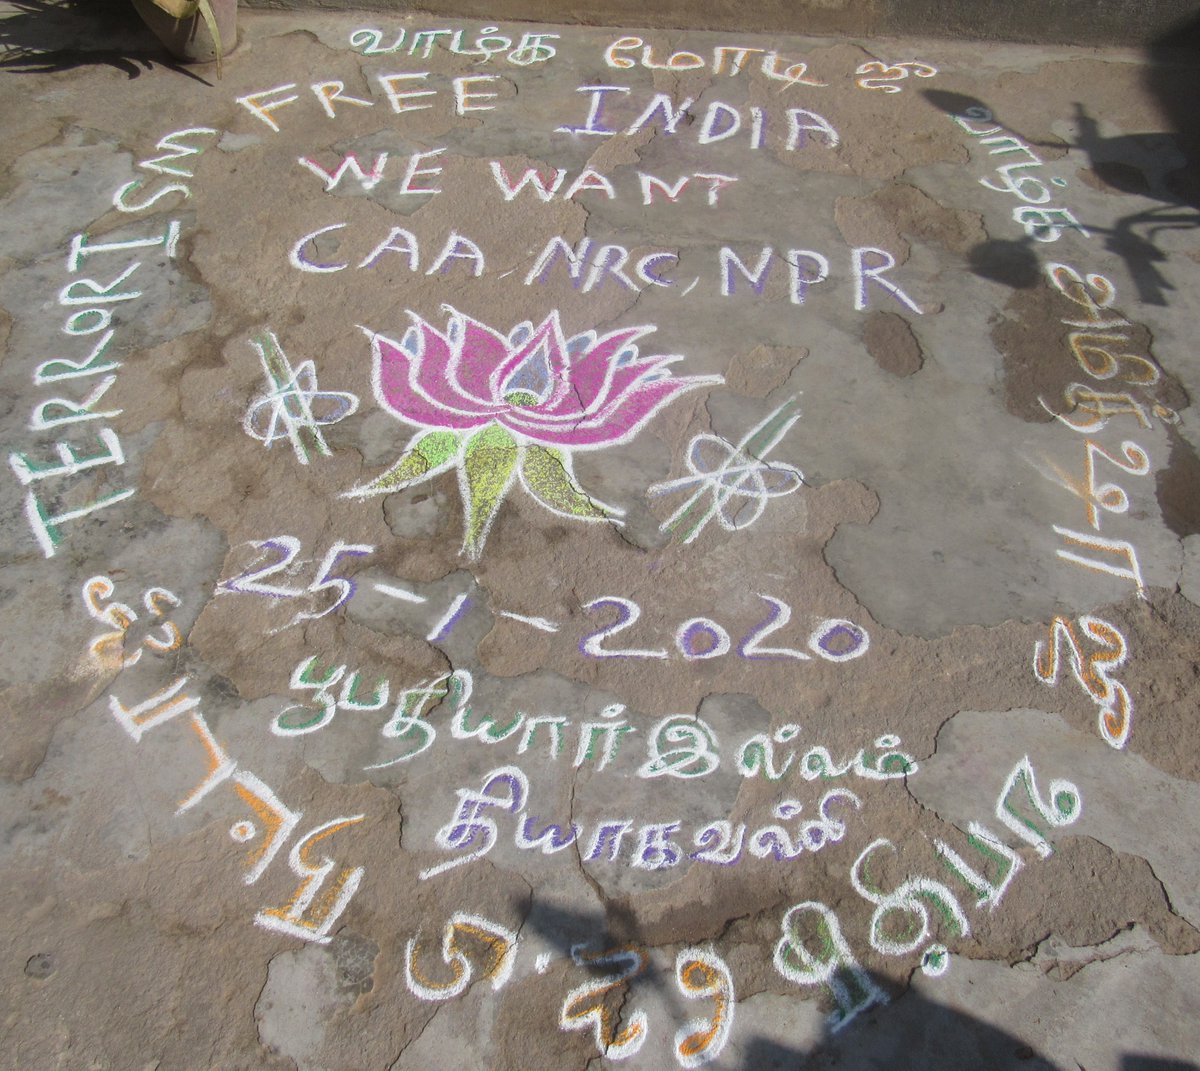 வாழ்க மோடி ஜி
TERRORISM FREE INDIA
WE WANT
CAA, NRC, NPR
வாழ்க அமித்ஷா ஜி
25-1-2020
பூபதியார் இல்லம்
தியாகவல்லி